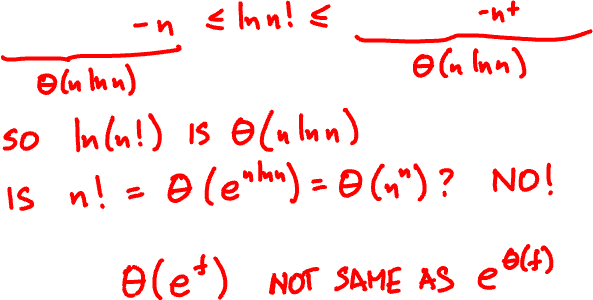 -n ≤ ln n! ≤ -n+
Θ(n ln n) Θ(n ln n)
SO ln(n!) IS Θ(n ln n)
IS n! = Θ(e^{n ln n}) = Θ(n^n)? NO!
Θ(e^f) NOT SAME AS e^{Θ(f)}